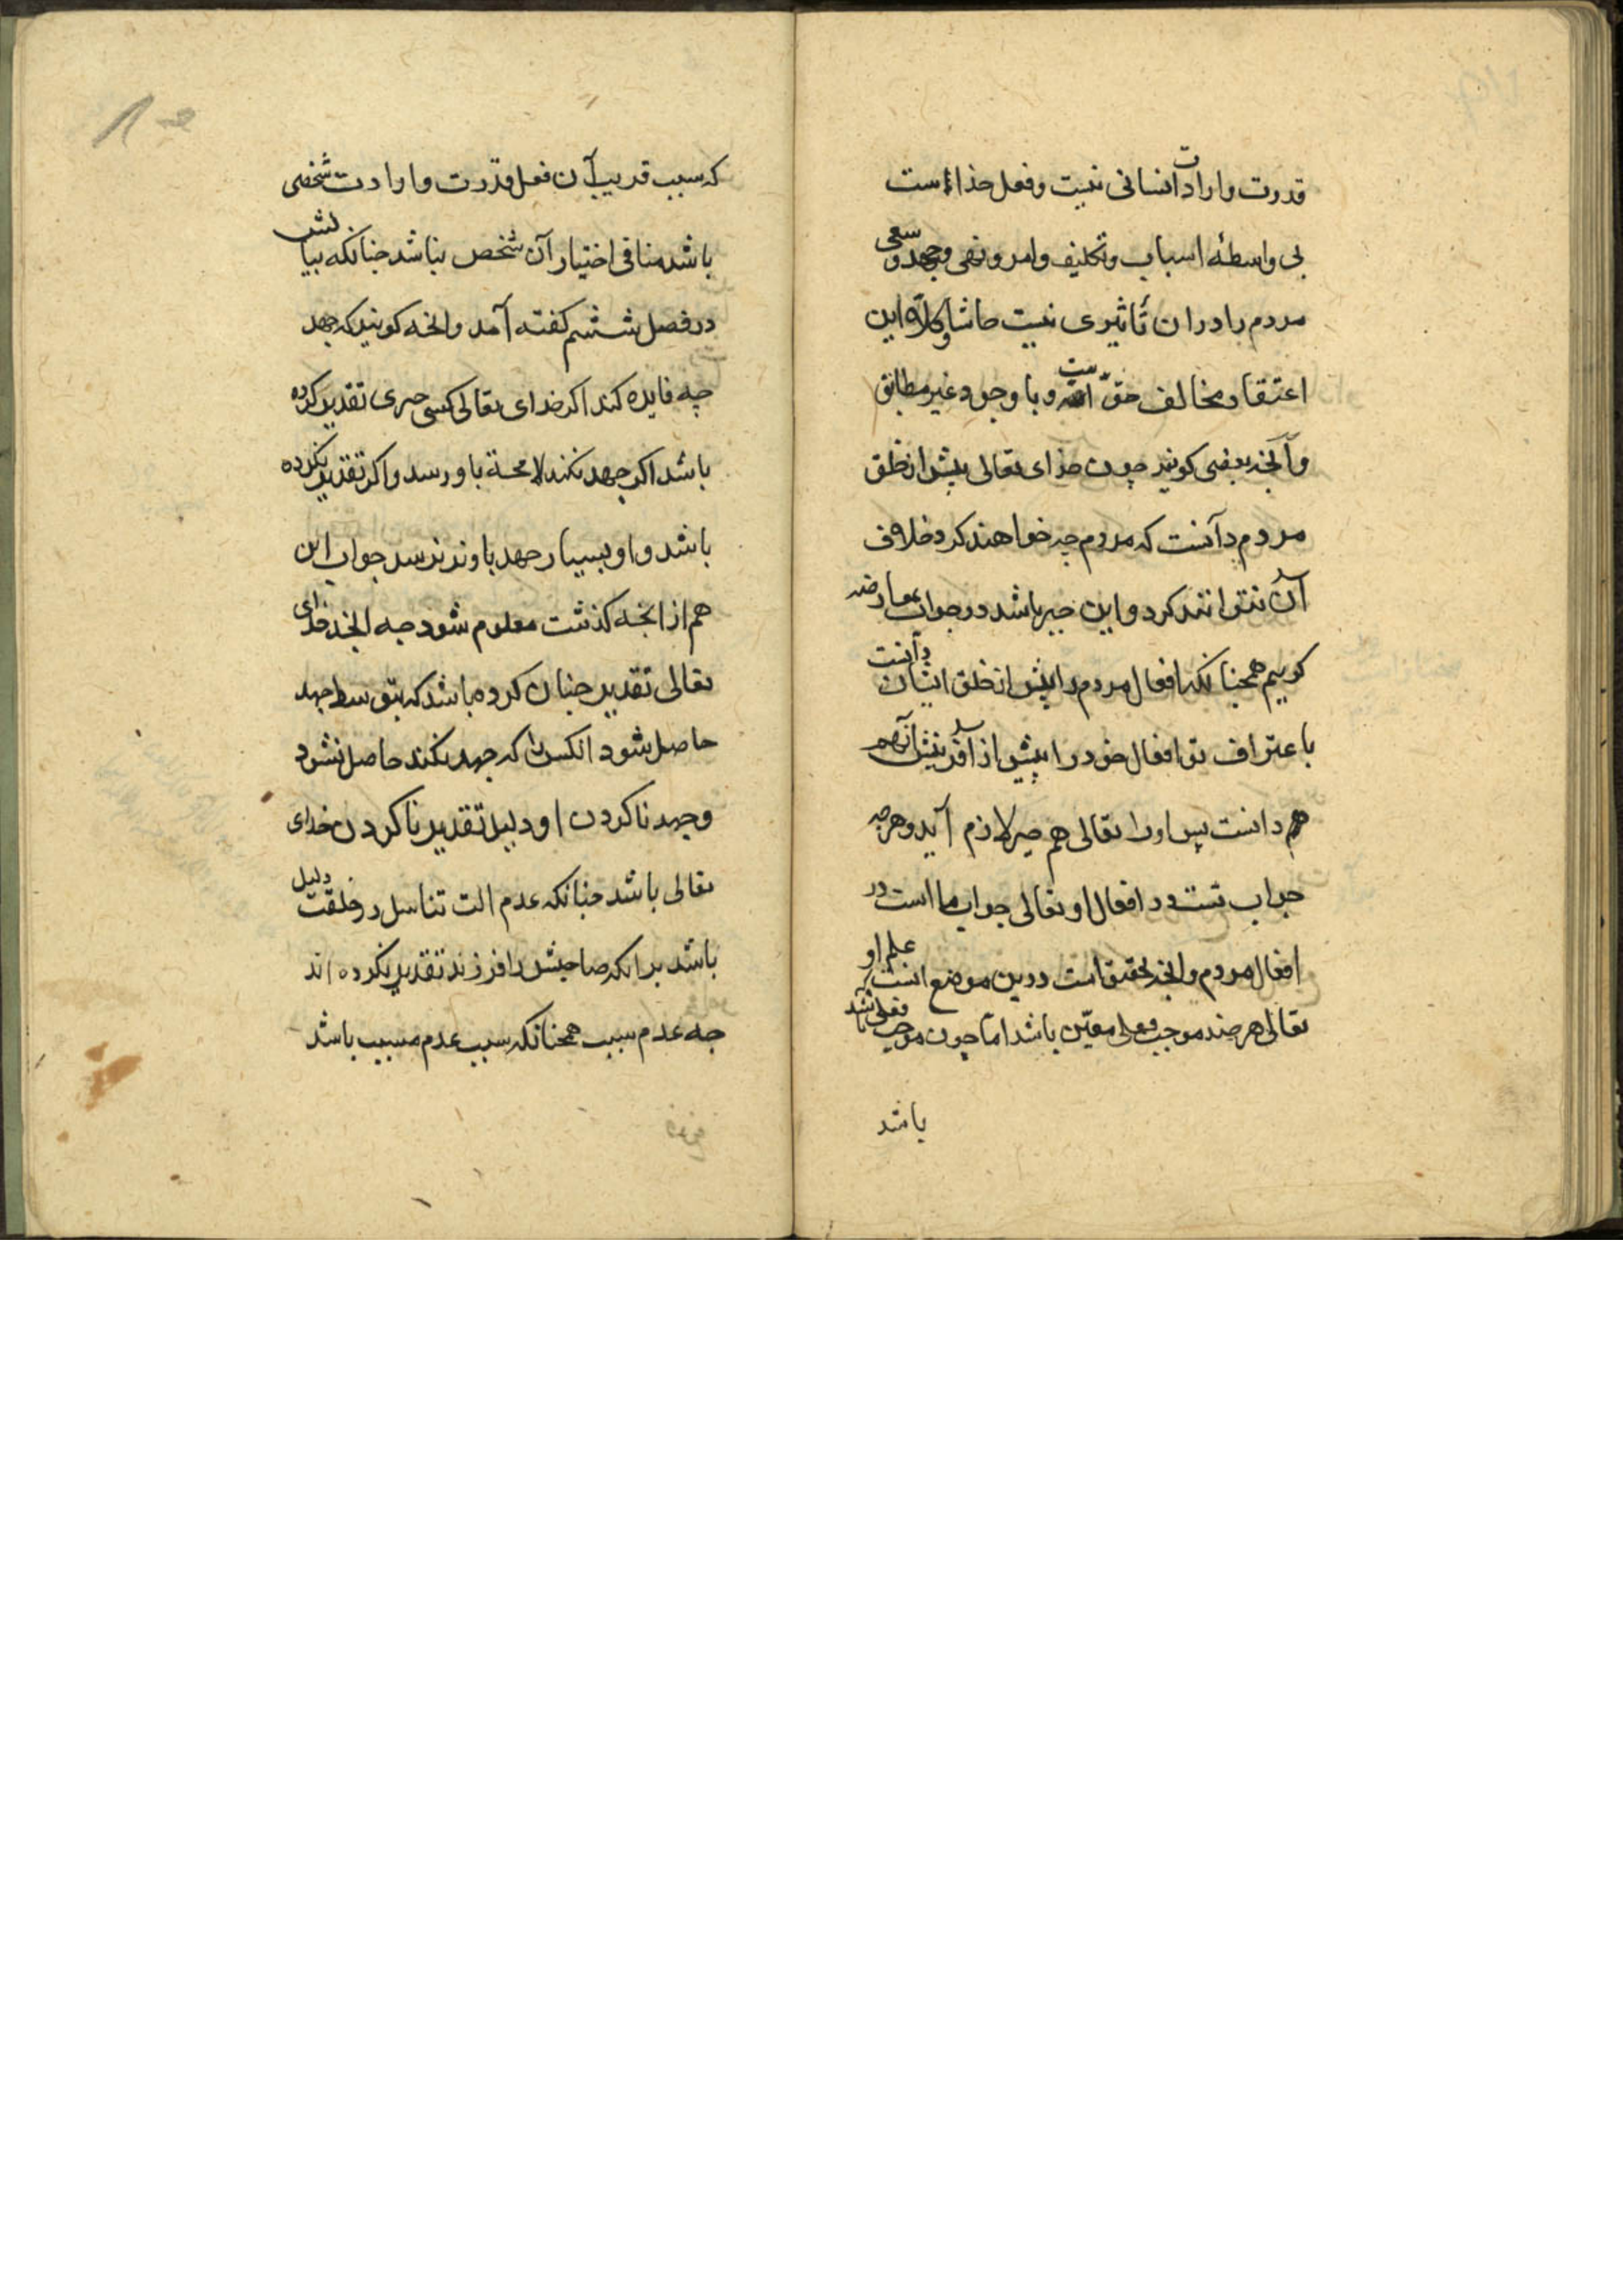 قدرت و ارادت انسانی نیست و فعل خذا است
بی واسطهٔ اسباب و تکلیف و امر و نهی و جهد و سعی
مردم را دران تأثیری نیست حاشا و کلا این
اعتقاد مخالف حقّ است و با وجود غیر مطابق
و آنخه بعضی کویند چون خدای تعالی پیش از خلق
مردم دانست که مردم چه خواهند کرد خلاف
آن نتوانند کرد و این جبر باشد در جواب بمعارضه
کوییم همجنانکه افعال مردم را پیش از خلق ایشان دانست
باعتراف تو افعال خود را پیش از آفرینش آن هم
هم دانست پس اورا تعالی هم جبر لازم آید و هرچه
جواب تست در افعال او تعالی جواب ما است در
افعال مردم و انخه تحقیق است درین موضع انست که علم او
تعالی هر جند موجب فعلی معیّن باشد امّا چون موجب فعلی باشد
باشد
که سبب قریب آن فعل قدرت و ارادت شخصی
باشد منافی اختیار آن شخص نباشد جنانکه بیانش
در فصل ششم کفته آمد و انخه کویند که جهد
چه فایده کند اکر خدای تعالی کسی را جیزی تقدیر کرده
باشد اکر جهد نکند لا محة باو رسد و اکر تقدیر نکرده
باشد و او بسیار جهد باو نرسد جواب این
هم از انجه کذشت معلوم شود جه انخه خدای
تعالی تقدیر جنان کرده باشد که بتوسط جهد
حاصل شود انکس را که جهد نکند حاصل نشود
و جهد ناکردن او دلیل تقدیر ناکردن خدای
تعالی باشد جنانکه عدم الت تناسل در خلقت دلیل
باشد برانکه صاحبش را فرزند تقدیر نکرده اند
جه عدم سبب همجنانکه سبب عدم مسبب باشد